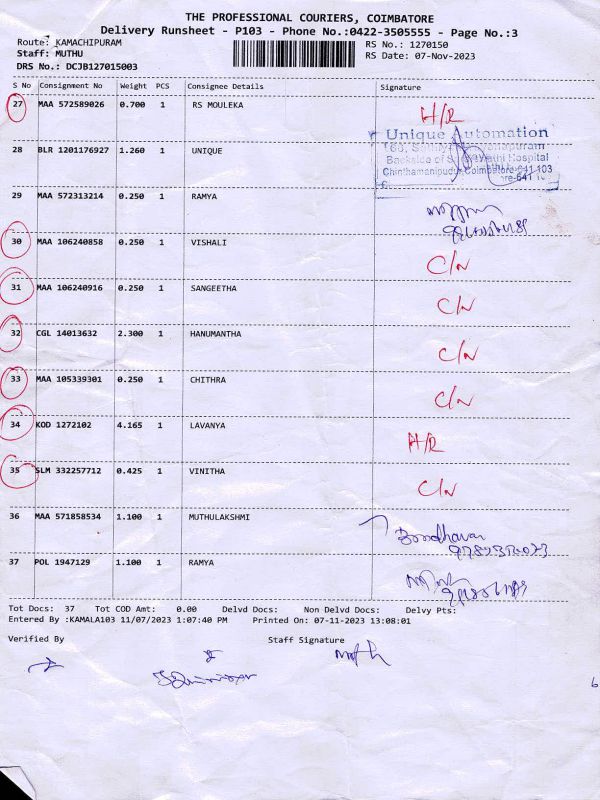 THE PROFESSIONAL COURIERS, COIMBATORE
Delivery Runsheet - P103 - Phone No.:0422-3505555 - Page No.:3
Route: KAMACHIPURAM
RS No.: 1270150
Staff: MUTHU
RS Date: 07-Nov-2023
DRS No.: DCJB127015003
S No Consignment No Weight PCS Consignee Details Signature
27 MAA 572589026 0.700 1 RS MOULEKA H/R
Unique Automation
28 BLR 1201176927 1.260 1 UNIQUE
Backside of Hospital
Chinthamanipudur Coimbatore-641 103
29 MAA 572313214 0.250 1 RAMYA
30 MAA 106240858 0.250 1 VISHALI C/N
31 MAA 106240916 0.250 1 SANGEETHA C/N
32 CGL 14013632 2.300 1 HANUMANTHA C/N
33 MAA 105339301 0.250 1 CHITHRA C/N
34 KOD 1272102 4.165 1 LAVANYA H/R
35 SLM 332257712 0.425 1 VINITHA C/N
36 MAA 571858534 1.100 1 MUTHULAKSHMI
37 POL 1947129 1.100 1 RAMYA
Tot Docs: 37 Tot COD Amt: 0.00 Delvd Docs: Non Delvd Docs: Delvy Pts:
Entered By :KAMALA103 11/07/2023 1:07:40 PM Printed On: 07-11-2023 13:08:01
Verified By Staff Signature